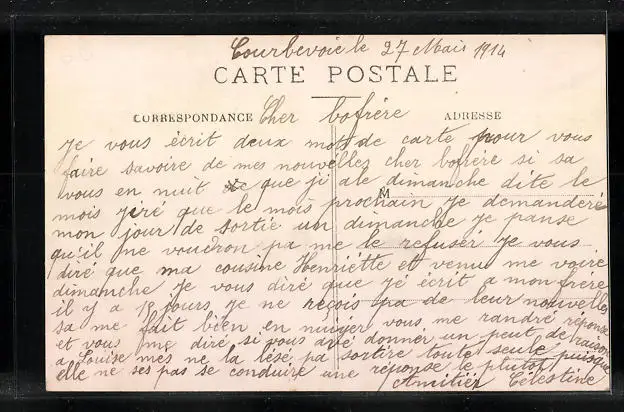 Courbevoie le 27 Mais 1914
CARTE POSTALE
CORRESPONDANCE Cher bofrére ADRESSE
Je vous écrit deux mots de carte pour vous
faire savoire de mes nouvellez cher bofrére si sa
vous en nuit que ji ale dimanche dite le
M
mois jiré que le mois prochain je demanderé
mon jour de sortie un dimanche je panse
qu'il me voudron pa me le refuser je vous
diré que ma cousine Henriétte et venu me voire
dimanche je vous diré que je écrit a mon frére
il y a 18 jours je ne reçois pa de leur nouvelles
sa me fait bien en nuiyer vous me randré réponse
et vous me diré si vous avé donnér un peut de raison
a Louise mes ne la lésé pa sortire toute seule puisque
elle ne ses pas se conduire une réponse le plutot
Amitiér Célestine